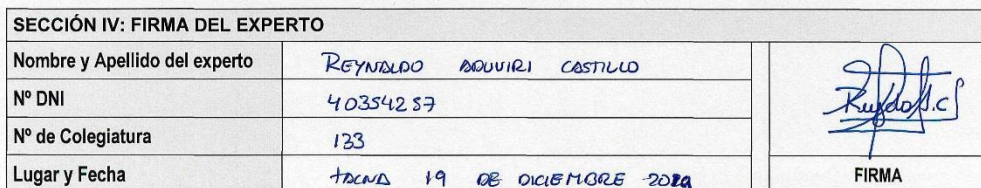 SECCIÓN IV: FIRMA DEL EXPERTO
Nombre y Apellido del experto REYNALDO ADUVIRI CASTILLO
Nº DNI 40354257
Nº de Colegiatura 133
Lugar y Fecha TACNA 19 DE DICIEMBRE 2019
FIRMA